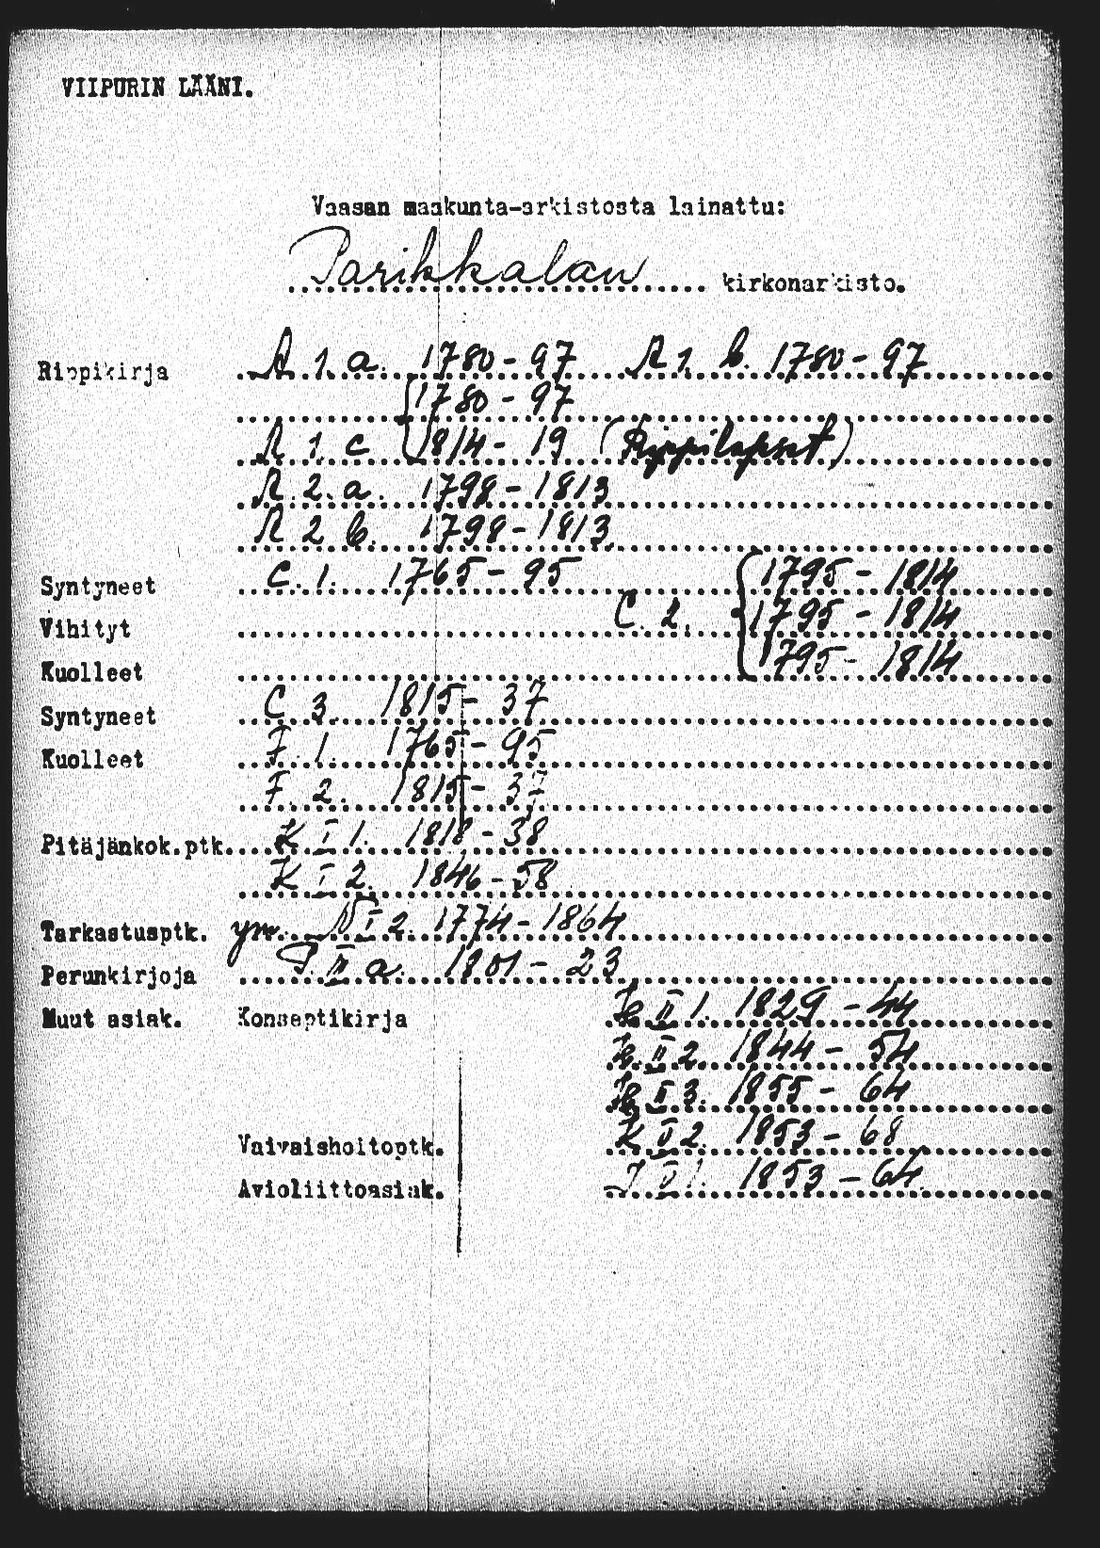 VIIPURIN LÄÄNI.
Vaasan maakunta-arkistosta lainattu:
Parikkalan kirkonarkisto.
Rippikirja A 1. a. 1780-97 A 1. b. 1780-97
1780-97
A 1 c 1814-19 (Rippilapset)
A. 2. a. 1798-1813
A 2 b. 1798-1813
Syntyneet C. 1. 1765-95 1795-1814
Vihityt C. 2. 1795-1814
Kuolleet 1795-1814
Syntyneet C 3. 1815-37
Kuolleet F. 1. 1765-95
F. 2. 1815-37
Pitäjänkok.ptk. K I 1. 1818-38
K I 2. 1846-58
Tarkastusptk. ym. N I 2. 1774-1864
Perunkirjoja P. II a. 1801-23
Muut asiak. Konseptikirja II 1. 1829-44
II 2. 1844-54
II 3. 1855-64
Vaivaishoitoptk. K 2. 1853-68
Avioliittoasiak. 1. 1853-64.